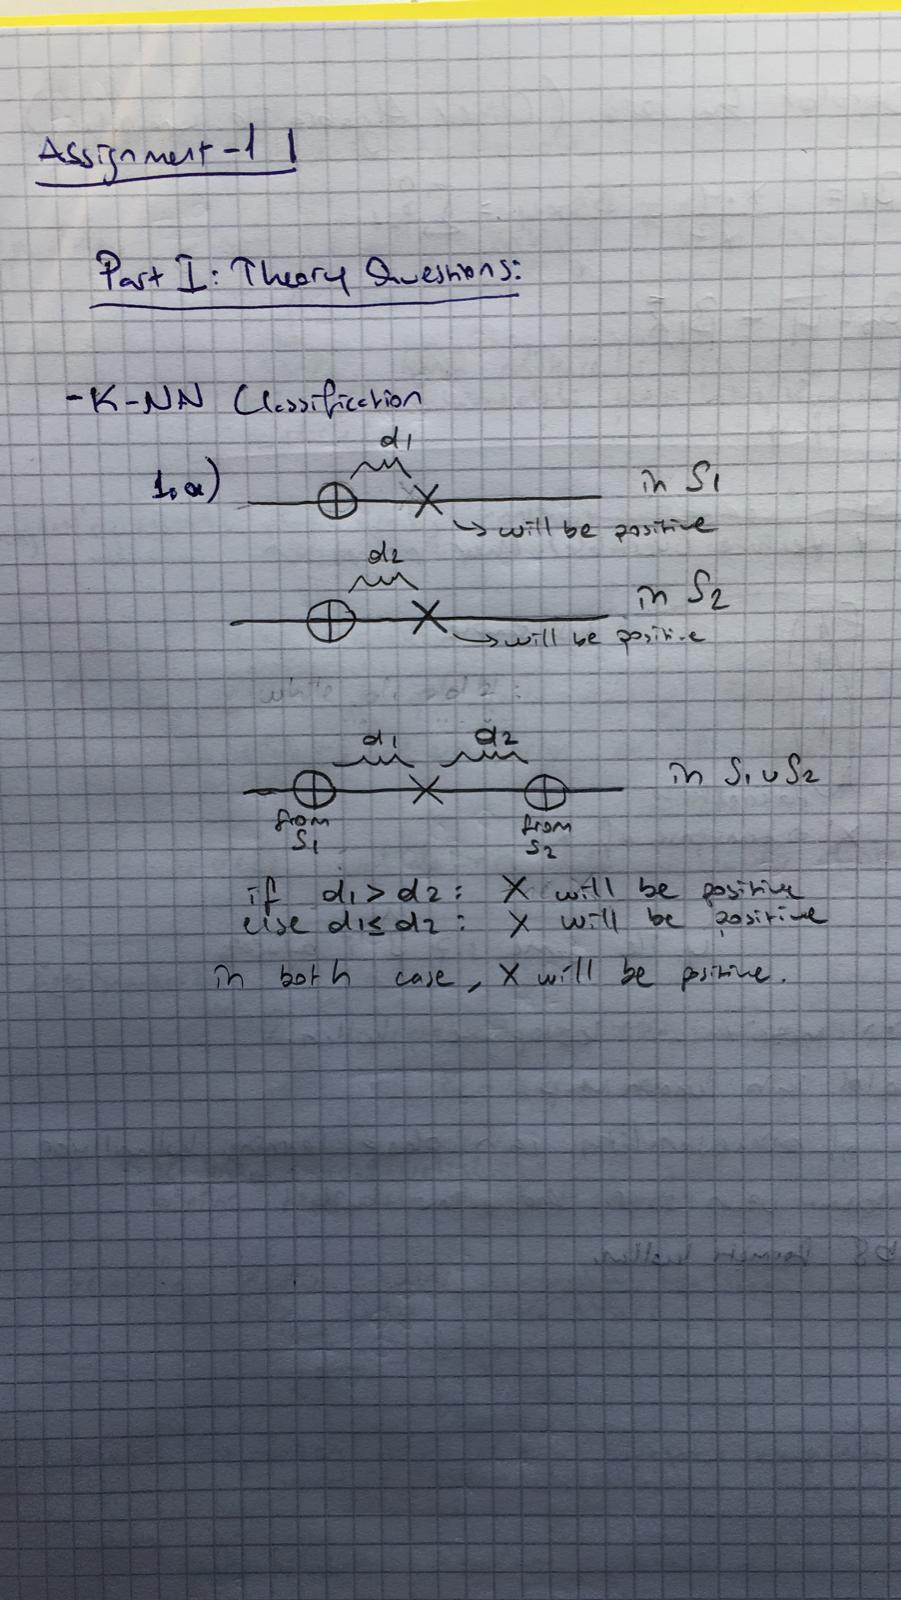 Assignment-1
Part I: Theory Questions:
-K-NN Classification
d1
1.a)
in S1
will be positive
d2
in S2
will be positive
d1 d2
in S1 ∪ S2
from from
S1 S2
if d1 > d2 : X will be positive
else d1 ≤ d2 : X will be positive
in both case, X will be positive.